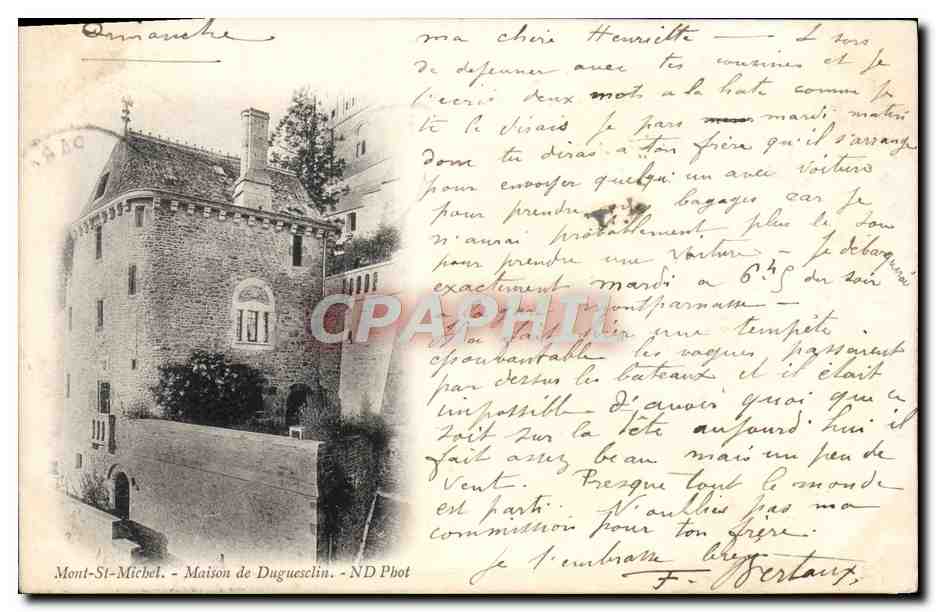 Dimanche
ma chère Henriette — Je sors
de dejeuner avec tes cousines et je
t'ecris deux mots a la hate comme je
te le disais je pars mardi matin
donc tu diras a ton frère qu'il s'arrange
pour envoyer quelqu'un avec voiture
pour prendre bagages car je
n'aurai probablement plus le sou
pour prendre une voiture — je débarquerai
exactement mardi a 6h45 du soir
a la gare montparnasse —
fait hier une tempête
épouvantable les vagues passaient
par dessus les bateaux et il était
impossible d'avoir quoi que ce
soit sur la tête aujourd'hui il
fait assez beau mais un peu de
vent. Presque tout le monde
est parti. N'oublies pas ma
commission pour ton frère.
Je t'embrasse bien
F. Bertaux
CPAPHIL
Mont-St-Michel. - Maison de Duguesclin. - ND Phot